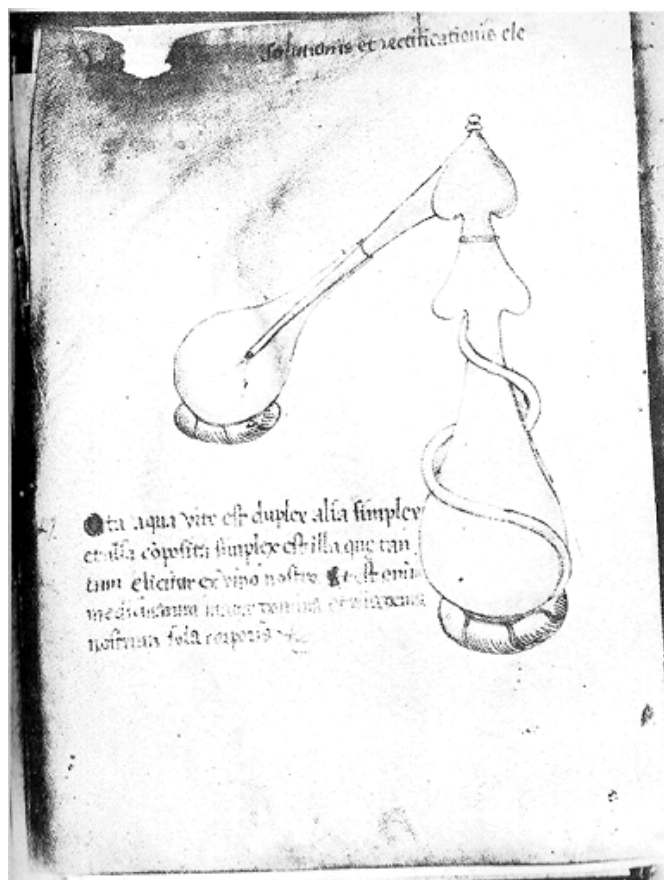 solutionis et rectificationis ele
ta aqua vite est duplex alia simplex
et alia cōposita simplex est illa que tan
tum elicitur ex vino nostro est omniū
medicinarum mater
nostrum sola corporis